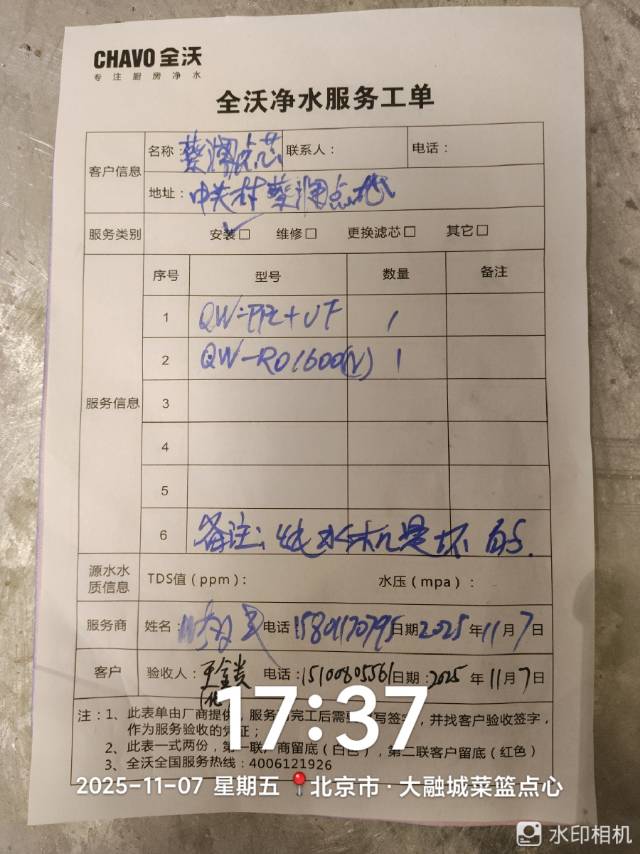 CHAVO 全沃
专注厨房净水
全沃净水服务工单
客户信息
名称: 点芯
联系人:
电话:
地址: 中关村 点
服务类别
安装☑ 维修□ 更换滤芯□ 其它□
服务信息
序号 型号 数量 备注
1 QW- +UF 1
2 QW-RO1600(V) 1
3
4
5
6 备注: 水机是坏的.
源水水质信息
TDS值 (ppm): 水压 (mpa):
服务商 姓名: 电话 15801170795 日期 2025 年 11 月 7 日
客户 验收人: 电话: 15100805561 日期: 2025 年 11 月 7 日
注: 1、此表单由厂商提供, 服务 完工后需 写签字, 并找客户验收签字,
作为服务验收的 证;
2、此表一式两份, 第一联厂商留底 (白色), 第二联客户留底 (红色)
3、全沃全国服务热线: 4006121926
17:37
2025-11-07 星期五 北京市·大融城菜篮点心
水印相机